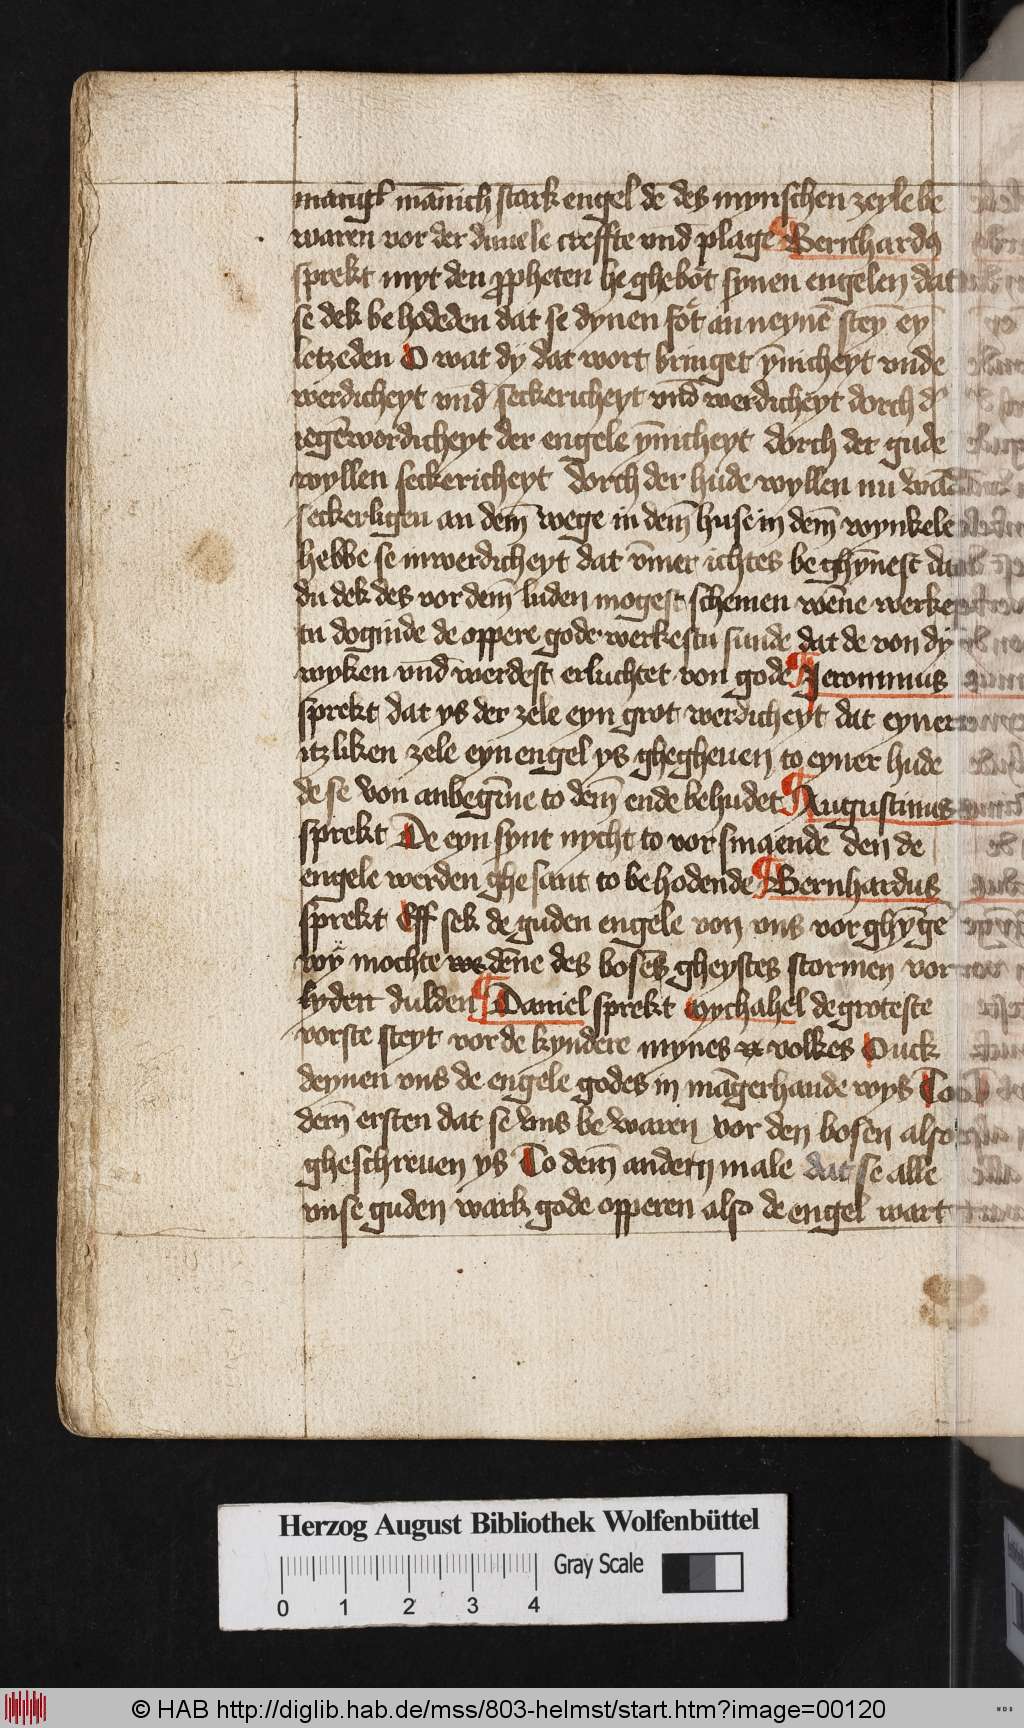 mānich stark engel dē des mynschen zeyle be
waren vor der duuele creffte vnd plage Bernhardꝯ
sprekt myt den ꝓpheten he ghebōt synen engelen dat
se dek be hodeden dat se dynen fot an neynē stey ey
letzeden O wat dy dat wort bringet ȳnicheyt vnde
werdicheyt vnd seckericheyt vnd werdicheyt dorch d
iegēwordicheyt der engele ȳnicheyt dorch der gude
wyllen seckericheyt dorch der hude wyllen nu
seckerligen an dem̄ wege in dem̄ huse in dem̄ wynkele
hebbe se inwerdicheyt dat v̄mer ichtes be ghȳnest
du dek des vor dem̄ luden mogest schemen wēne werke
tu doginde de oppere gode werkestu sunde dat de von dy
wyken vnd werdest erluchtet von gode Jeronimus
sprekt dat ys der zele eyn grot werdicheyt dat eyner
itzliken zele eyn engel ys ghegheuen to eyner hude
de se von anbegīne to dem̄ ende behudet Augustinus
sprekt De eyn synt nycht to vor smaende den de
engele werden ghe sant to be hodende Bernhardus
sprekt Eff sek de guden engele von vns vor ghȳge
wy mochte we dēne des bosen gheystes stormen vor
lyden dulden Daniel sprekt Mychahel de groteste
vorste steyt vor de kyndere mynes volkes Ouck
deynen vns de engele godes in māgerhande wys To
dem̄ ersten dat se vns be waren vor den bosen also
gheschreuen ys To dem̄ andern male dat se alle
vnse guden wark gode opperen also de engel wart
Herzog August Bibliothek Wolfenbüttel
Gray Scale
0 1 2 3 4
© HAB http://diglib.hab.de/mss/803-helmst/start.htm?image=00120